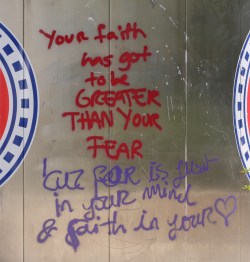 Your faith
has got
to be
GREATER
THAN YOUR
FEAR
'cuz fear is just
in your mind
& faith in your ♡